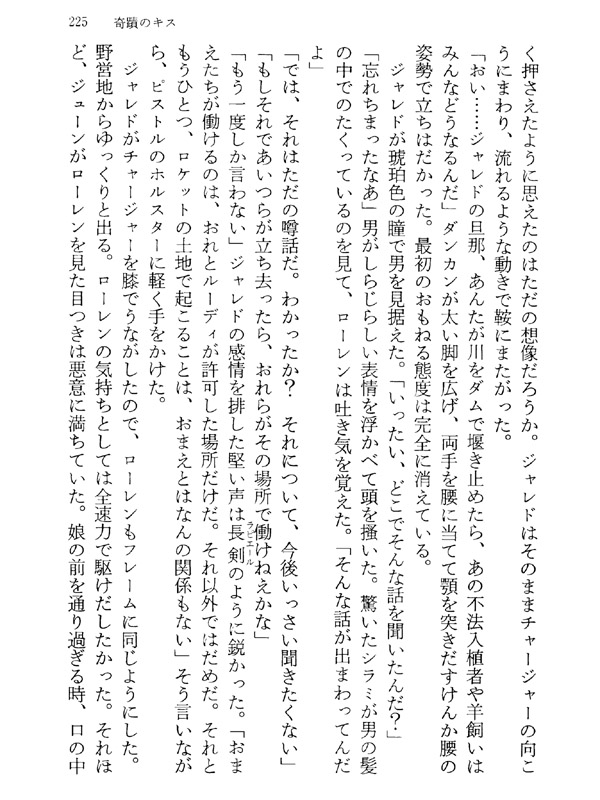 225　奇蹟のキス
く押さえたように思えたのはただの想像だろうか。ジャレドはそのままチャージャーの向こ
うにまわり、流れるような動きで鞍にまたがった。
「おい……ジャレドの旦那、あんたが川をダムで堰き止めたら、あの不法入植者や羊飼いは
みんなどうなるんだ」ダンカンが太い脚を広げ、両手を腰に当てて顎を突きだすけんか腰の
姿勢で立ちはだかった。最初のおもねる態度は完全に消えている。
ジャレドが琥珀色の瞳で男を見据えた。「いったい、どこでそんな話を聞いたんだ？」
「忘れちまったなあ」男がしらじらしい表情を浮かべて頭を搔いた。驚いたシラミが男の髪
の中でのたくっているのを見て、ローレンは吐き気を覚えた。「そんな話が出まわってんだ
よ」
「では、それはただの噂話だ。わかったか？　それについて、今後いっさい聞きたくない」
「もしそれであいつらが立ち去ったら、おれらがその場所で働けねえかな」
「もう一度しか言わない」ジャレドの感情を排した堅い声は長剣のように鋭かった。「おま
ラピエール
えたちが働けるのは、おれとルーディが許可した場所だけだ。それ以外ではだめだ。それと
もうひとつ、ロケットの土地で起こることは、おまえとはなんの関係もない」そう言いなが
ら、ピストルのホルスターに軽く手をかけた。
ジャレドがチャージャーを膝でうながしたので、ローレンもフレームに同じようにした。
野営地からゆっくりと出る。ローレンの気持ちとしては全速力で駆けだしたかった。それほ
ど、ジューンがローレンを見た目つきは悪意に満ちていた。娘の前を通り過ぎる時、口の中